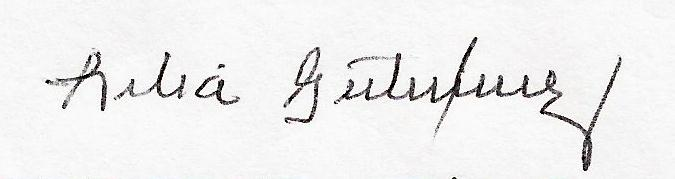 Lilia Gutiérrez